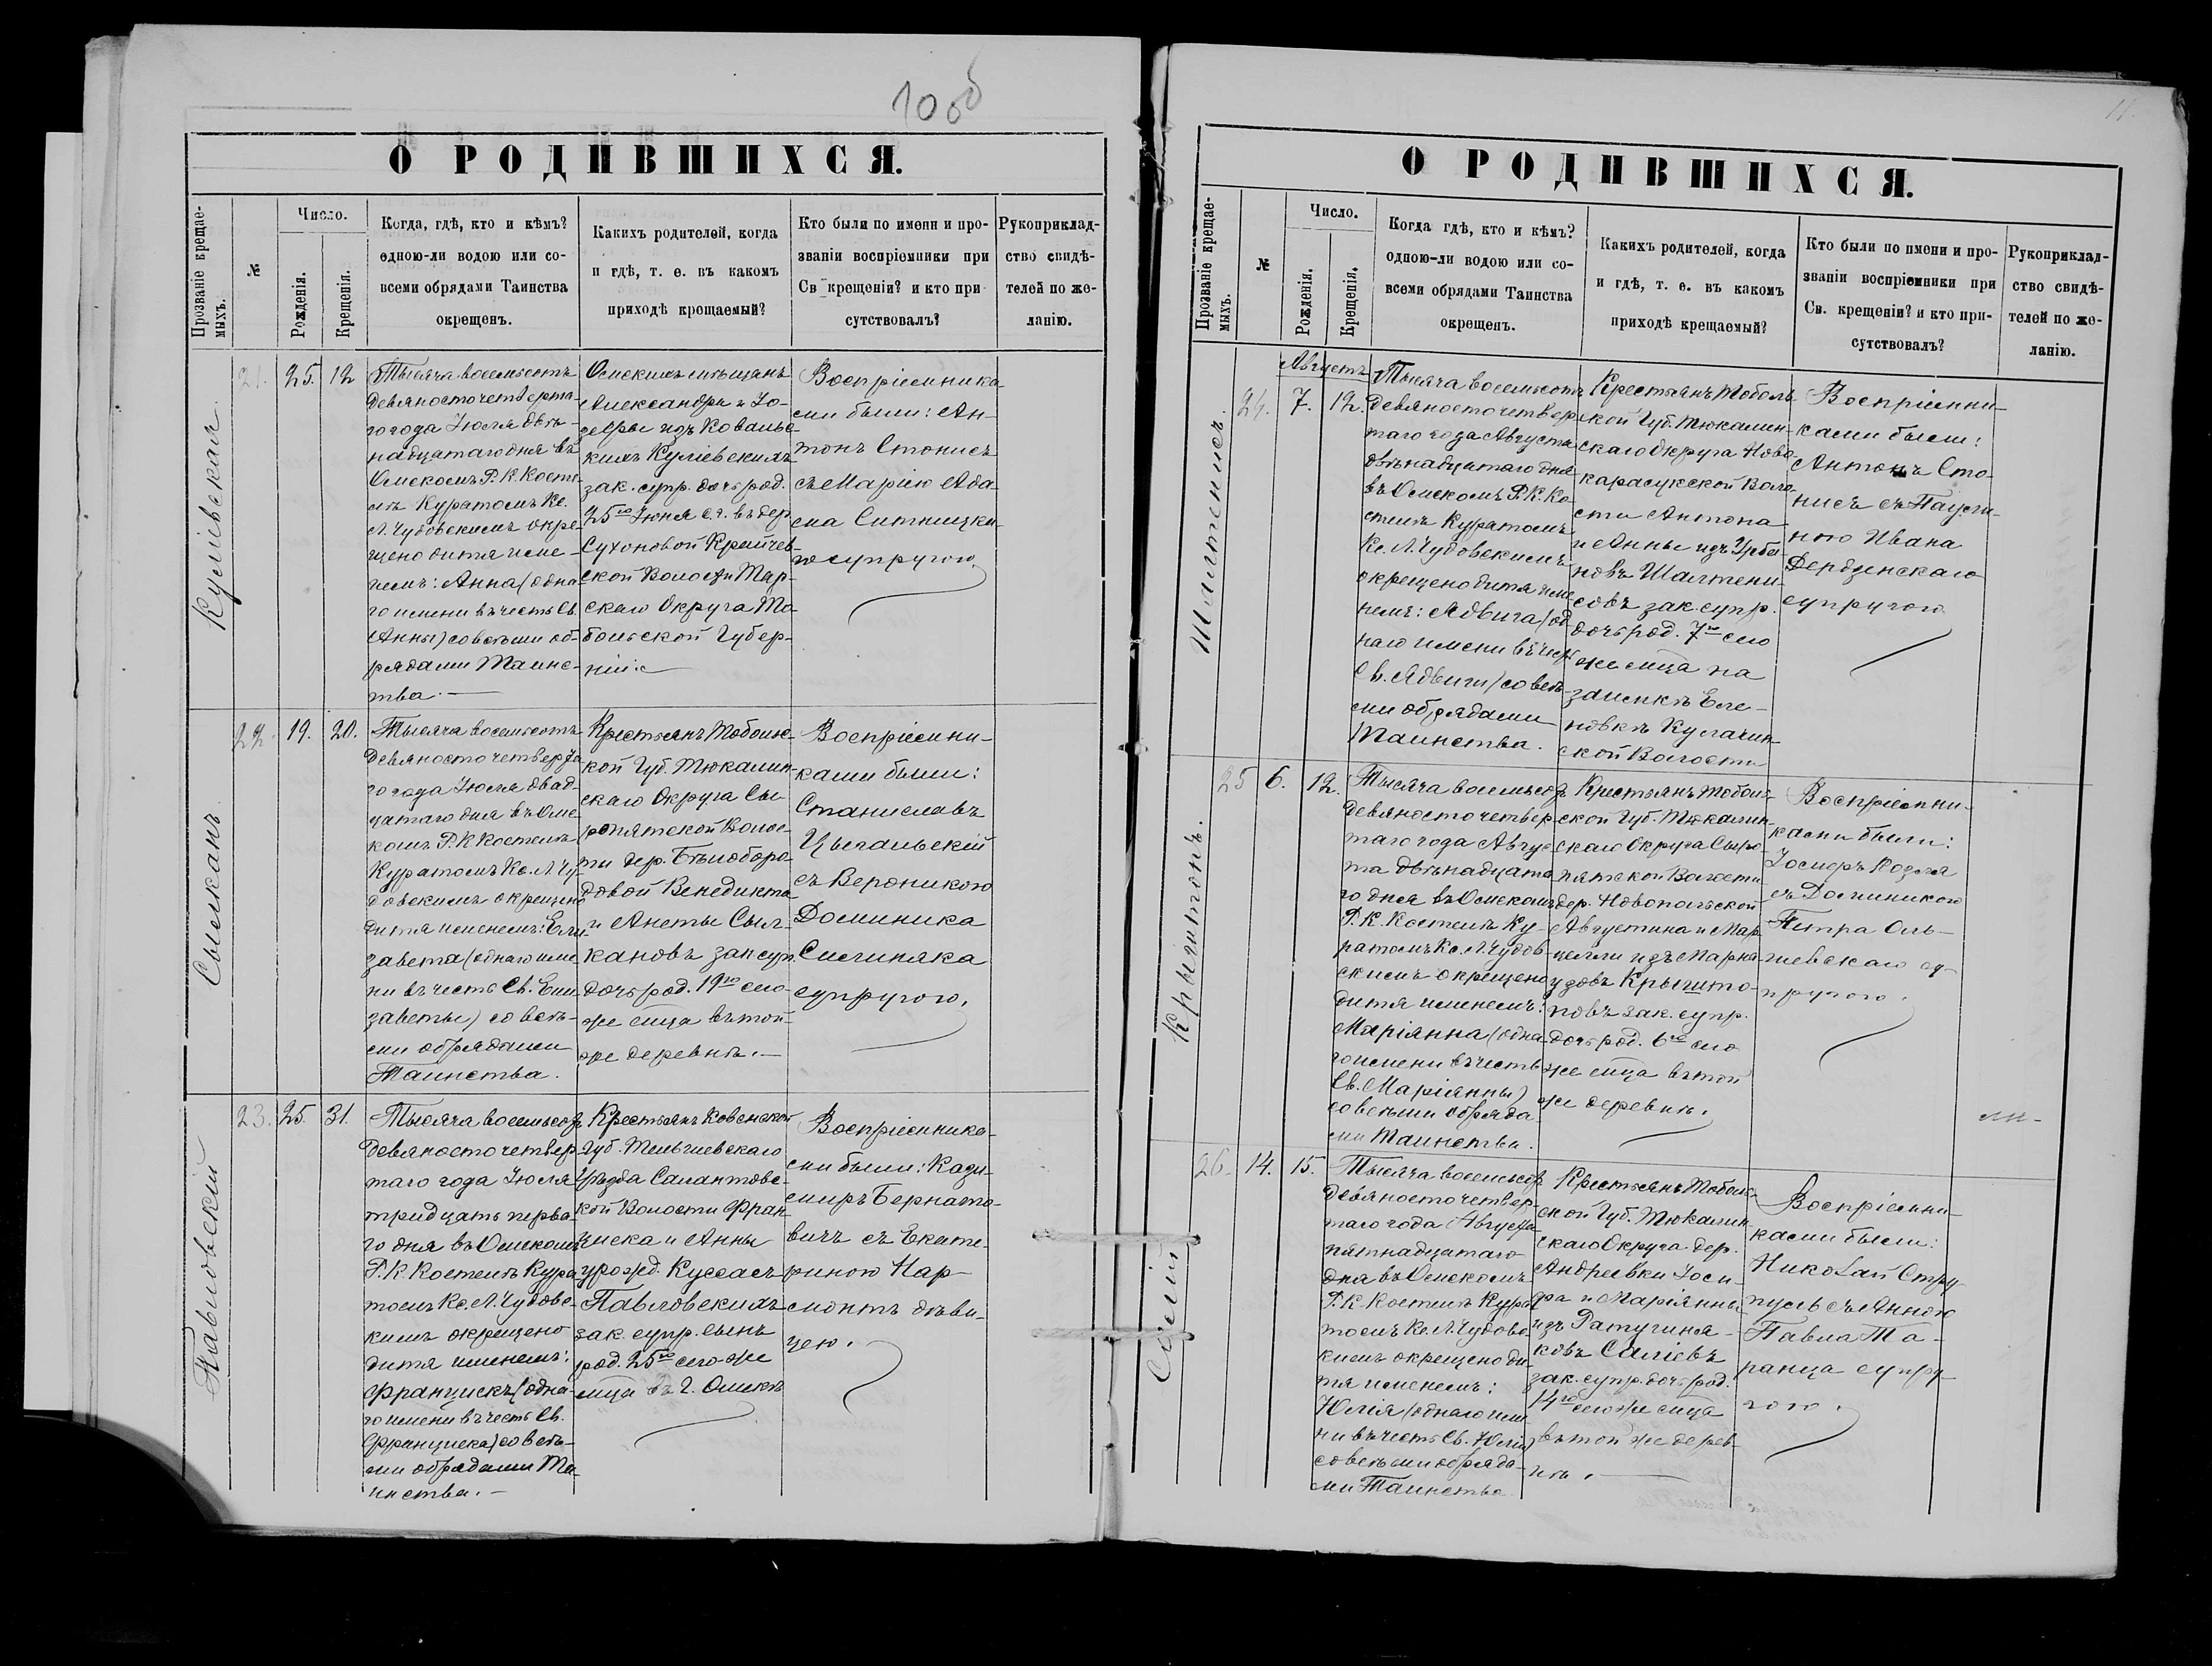 10 об
О РОДИВШИХСЯ.
Прозваніе крещае-
мыхъ.
№
Число.
Рожденія.
Крещенія.
Когда, гдѣ, кто и кѣмъ?
едною-ли водою или со-
всеми обрядами Таинства
окрещенъ.
Какихъ родителей, когда
и гдѣ, т. е. въ какомъ
приходѣ крещаемый?
Кто были по имени и про-
званіи воспріемники при
Св крещеніи? и кто при
сутствовалъ?
Рукоприклад-
ство свидѣ-
телей по же-
ланію.
Кулiевская
21.
25.
12
Тысяча восемьсотъ
девяносто четверта-
го года Июля двѣ-
надцатаго дня въ
Омскомъ Р. К. Косте-
лѣ Куратомъ Кс.
Л. Чудовскимъ окре-
щено дитя име-
немъ: Анна (одна-
го имени въ честь Св.
Анны) со всѣми об-
рядами Таинс-
тва.
Омскихъ мѣщанъ
Александра и Іо-
зефы изъ Ковальс-
кихъ Куліевскихъ
зак. супр. дочь род.
25го Іюня с.г. въ дер.
Сухоновой Крайчев-
ской Волости Тар-
скаго Округа То-
больской Губер-
ніи
Воспріемника-
ми были: Ан-
тонъ Стонисъ
съ Маріею Ада-
ма Ситницка-
го супругою.
Сылканъ
22.
19.
20.
Тысяча восемьсотъ
девяносто четверта
го года Июля двад-
цатаго дня въ Омс-
комъ Р. К Костелѣ
Куратомъ Кс. Л Чу-
довскимъ окрещено
дитя именемъ: Ели-
завета (однаго име-
ни въ честь Св. Ели-
заветы) со всѣ-
ми обрядами
Таинства.
Крестьянъ Тобольс-
кой Губ. Тюкалин-
скаго Округа Сы-
ропятской Волос-
ти дер. Бѣлоборо-
довой Венедикта
и Анеты Сыл-
кановъ зак суп.
дочь род. 19го сего
же мца въ той-
же деревнѣ.
Воспріемни-
ками были:
Станиславъ
Цыгальскій
съ Вероникою
Доминика
Силиняка
супругою.
Павловскій
23.
25.
31.
Тысяча восемьсотъ
девяносто четвер-
таго года Июля
тридцать перва-
го дня въ Омскомъ
Р. К. Костелѣ Кура
томъ Кс. Л. Чудовс-
кимъ окрещено
дитя именемъ:
Францискъ (одна-
го имени въ честь Св.
Франциска) со всѣ-
ми обрядами Та-
инства.
Крестьянъ Ковенской
Губ. Тельшевскаго
Уѣзда Салантовс-
кой Волости Фран-
циска и Анны
урожд. Куссасъ
Павловскихъ
зак. супр. сынъ
род. 25го сего-же
мца въ г. Омскѣ
Воспріемника-
ми были: Кази-
миръ Бернато-
вичъ съ Екате-
риною Нар-
монтъ дѣви-
цею.
11.
О РОДИВШИХСЯ.
Прозваніе крещае-
мыхъ.
№
Число.
Рожденія.
Крещенія.
Когда гдѣ, кто и кѣмъ?
одною-ли водою или со-
всеми обрядами Таинства
окрещенъ.
Какихъ родителей, когда
и гдѣ, т. е. въ какомъ
приходѣ крещаемый?
Кто были по имени и про-
званіи воспріемники при
Св. крещеніи? и кто при-
сутствовалъ?
Рукоприклад-
ство свидѣ-
телей по же-
ланію.
Шалтенисъ.
24.
Августъ
7.
12.
Тысяча восемьсотъ
девяносто четвер-
таго года Августа
двѣнадцатаго дня
въ Омскомъ Р. К. Ко-
стелѣ Куратомъ
Кс. Л. Чудовскимъ
окрещено дитя име
немъ: Ядвига (од-
наго имени въ честь
Св. Ядвиги) со всѣ-
ми обрядами
Таинства.
Крестьянъ Тоболь-
ской Губ. Тюкалин-
скаго Округа Ново-
карасукской Воло-
сти Антона
и Анны изъ Урба-
новъ Шалтени-
совъ зак. супр.
дочь род. 7го сего
же мца на
заимкѣ Еле-
новкѣ Кулачин-
ской Волости
Воспріемни-
ками были:
Антонъ Сто-
нисъ съ Паули-
ною Ивана
Дердзинскаго
супругою.
Крыштопъ.
25
6.
12.
Тысяча восемьсотъ
девяносто четвер-
таго года Авгус-
та двѣнадцата
го дня въ Омскомъ
Р. К. Костелѣ Ку-
ратомъ Кс. Л Чудов-
скимъ окрещено
дитя именемъ:
Маріянна (одна-
го имени въ честь
Св. Маріянны)
со всѣми обряда-
ми Таинства.
Крестьянъ Тоболь-
ской Губ. Тюкалин-
скаго Округа Сыро-
пятской Волости
дер. Новопольской
Августина и Мар-
целли изъ
Крышто-
повъ зак. супр.
дочь род. 6го сего
же мца въ той
же деревнѣ.
Воспріемни-
ками были:
Іосифъ Козля
съ Доминикою
Петра Оль-
шевскаго су-
пругою.
Салій
26.
14.
15.
Тысяча восемьсотъ
девяносто четвер-
таго года Августа
пятнадцатаго
дня въ Омскомъ
Р. К Костелѣ Кура
томъ Кс. Л. Чудовс-
кимъ окрещено ди-
тя именемъ:
Юлія (однаго име
ни въ честь Св. Юліи)
со всѣми обряда-
ми Таинства
Крестьянъ Тобольс-
ской Губ. Тюкалин-
скаго Округа дер.
Андреевки Іоси-
фа и Маріянны
изъ Ратугиня-
ковъ Саліевъ
зак. супр. дочь род.
14го сего же мца
въ той же дерев-
нѣ.
Воспріемни-
ками были:
Николай Стру-
пусь съ Анною
Павла Та-
ранца супру-
гою.